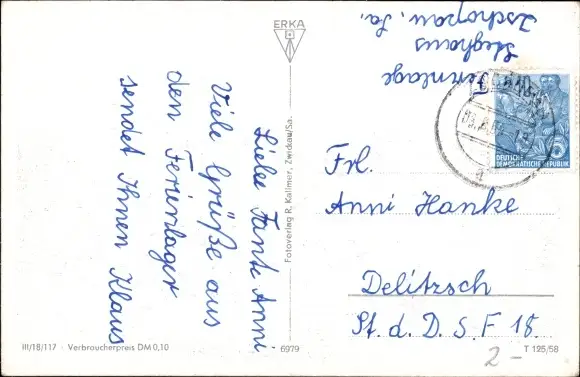 ERKA
Liebe Tante Anni
Viele Grüße aus
den Ferienlager
sendet Ihnen Klaus
III/18/117 · Verbraucherpreis DM 0,10
Fotoverlag R. Kallmer, Zwickau/Sa.
6979
Ferienlage
Steghaus
Zschopau, Sa.
DEUTSCHE
DEMOKRATISCHE REPUBLIK
Frl.
Anni Hanke
Delitzsch
St. d. D. S. F 18.
T 125/58
2 -